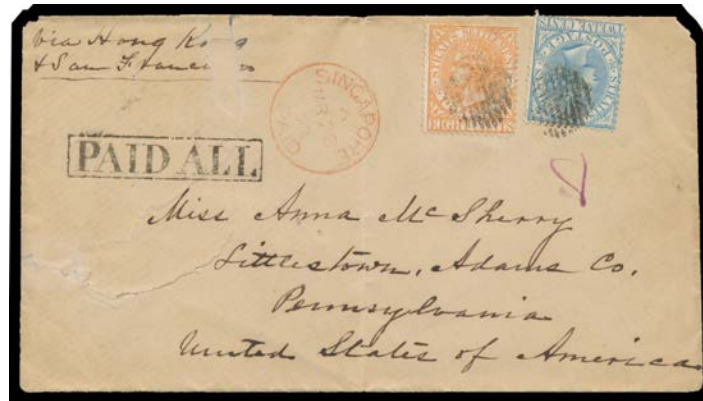 via Hong Kong
& San Francisco
SINGAPORE
PAID
STRAITS SETTLEMENTS
EIGHT CENTS
STRAITS
POSTAGE
TWELVE CENTS
PAID ALL
Miss Anna McSherry
Littlestown, Adams Co.
Pennsylvania
United States of America